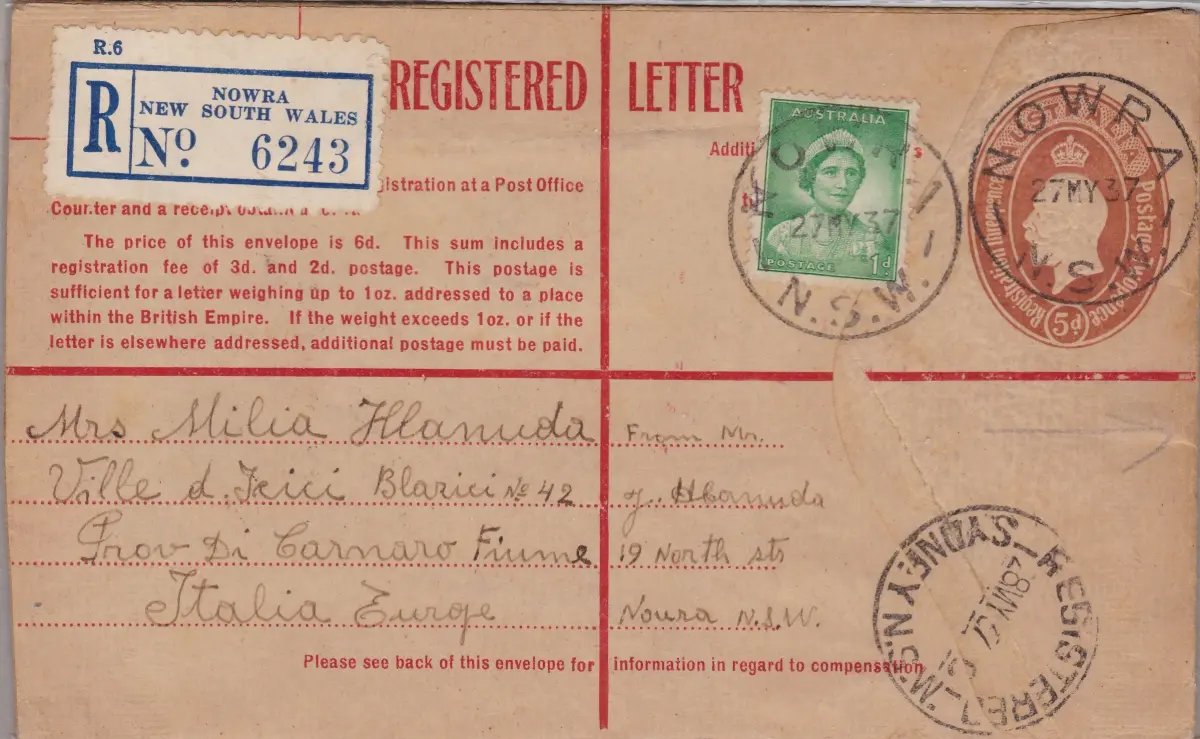 R.6
R
NOWRA
NEW SOUTH WALES
No. 6243
REGISTERED LETTER
Additi
s
gistration at a Post Office
Counter and a receipt
The price of this envelope is 6d. This sum includes a
registration fee of 3d. and 2d. postage. This postage is
sufficient for a letter weighing up to 1oz. addressed to a place
within the British Empire. If the weight exceeds 1oz. or if the
letter is elsewhere addressed, additional postage must be paid.
AUSTRALIA
POSTAGE 1d.
NOWRA
27MY37
N.S.W.
NOWRA
27MY37
N.S.W.
Postage Twopence
Registration Threepence
5d
Mrs Milia Hlanuda
Ville d. Icici Blazici No 42
Prov Di Carnaro Fiume
Italia Europe
From Mr.
J. Hlanuda
19 North sts
Noura N.S.W.
REGISTERED
SYDNEY N.S.W.
28MY37
Please see back of this envelope for information in regard to compensation